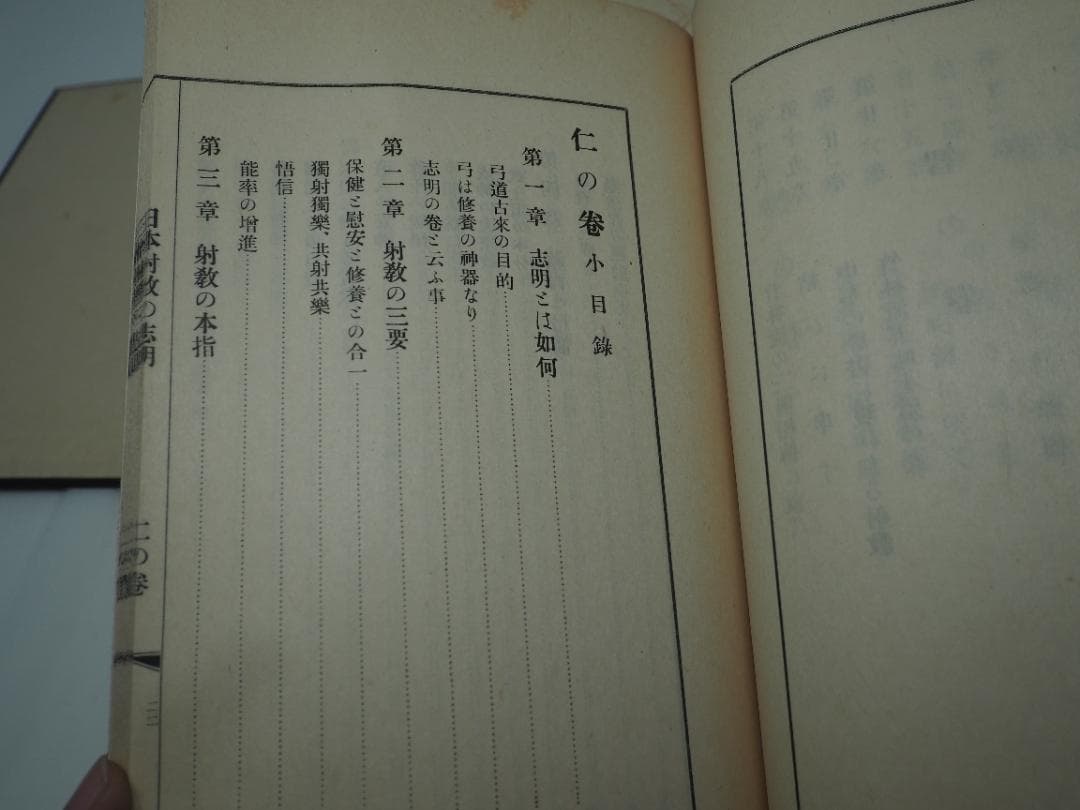 仁の卷 小目錄
第一章 志明とは如何
弓道古來の目的
弓は修養の神器なり
志明の卷と云ふ事
第二章 射教の三要
保健と慰安と修養との合一
獨射獨樂、共射共樂
悟信
能率の增進
第三章 射教の本指
日本射教の志明
仁の卷